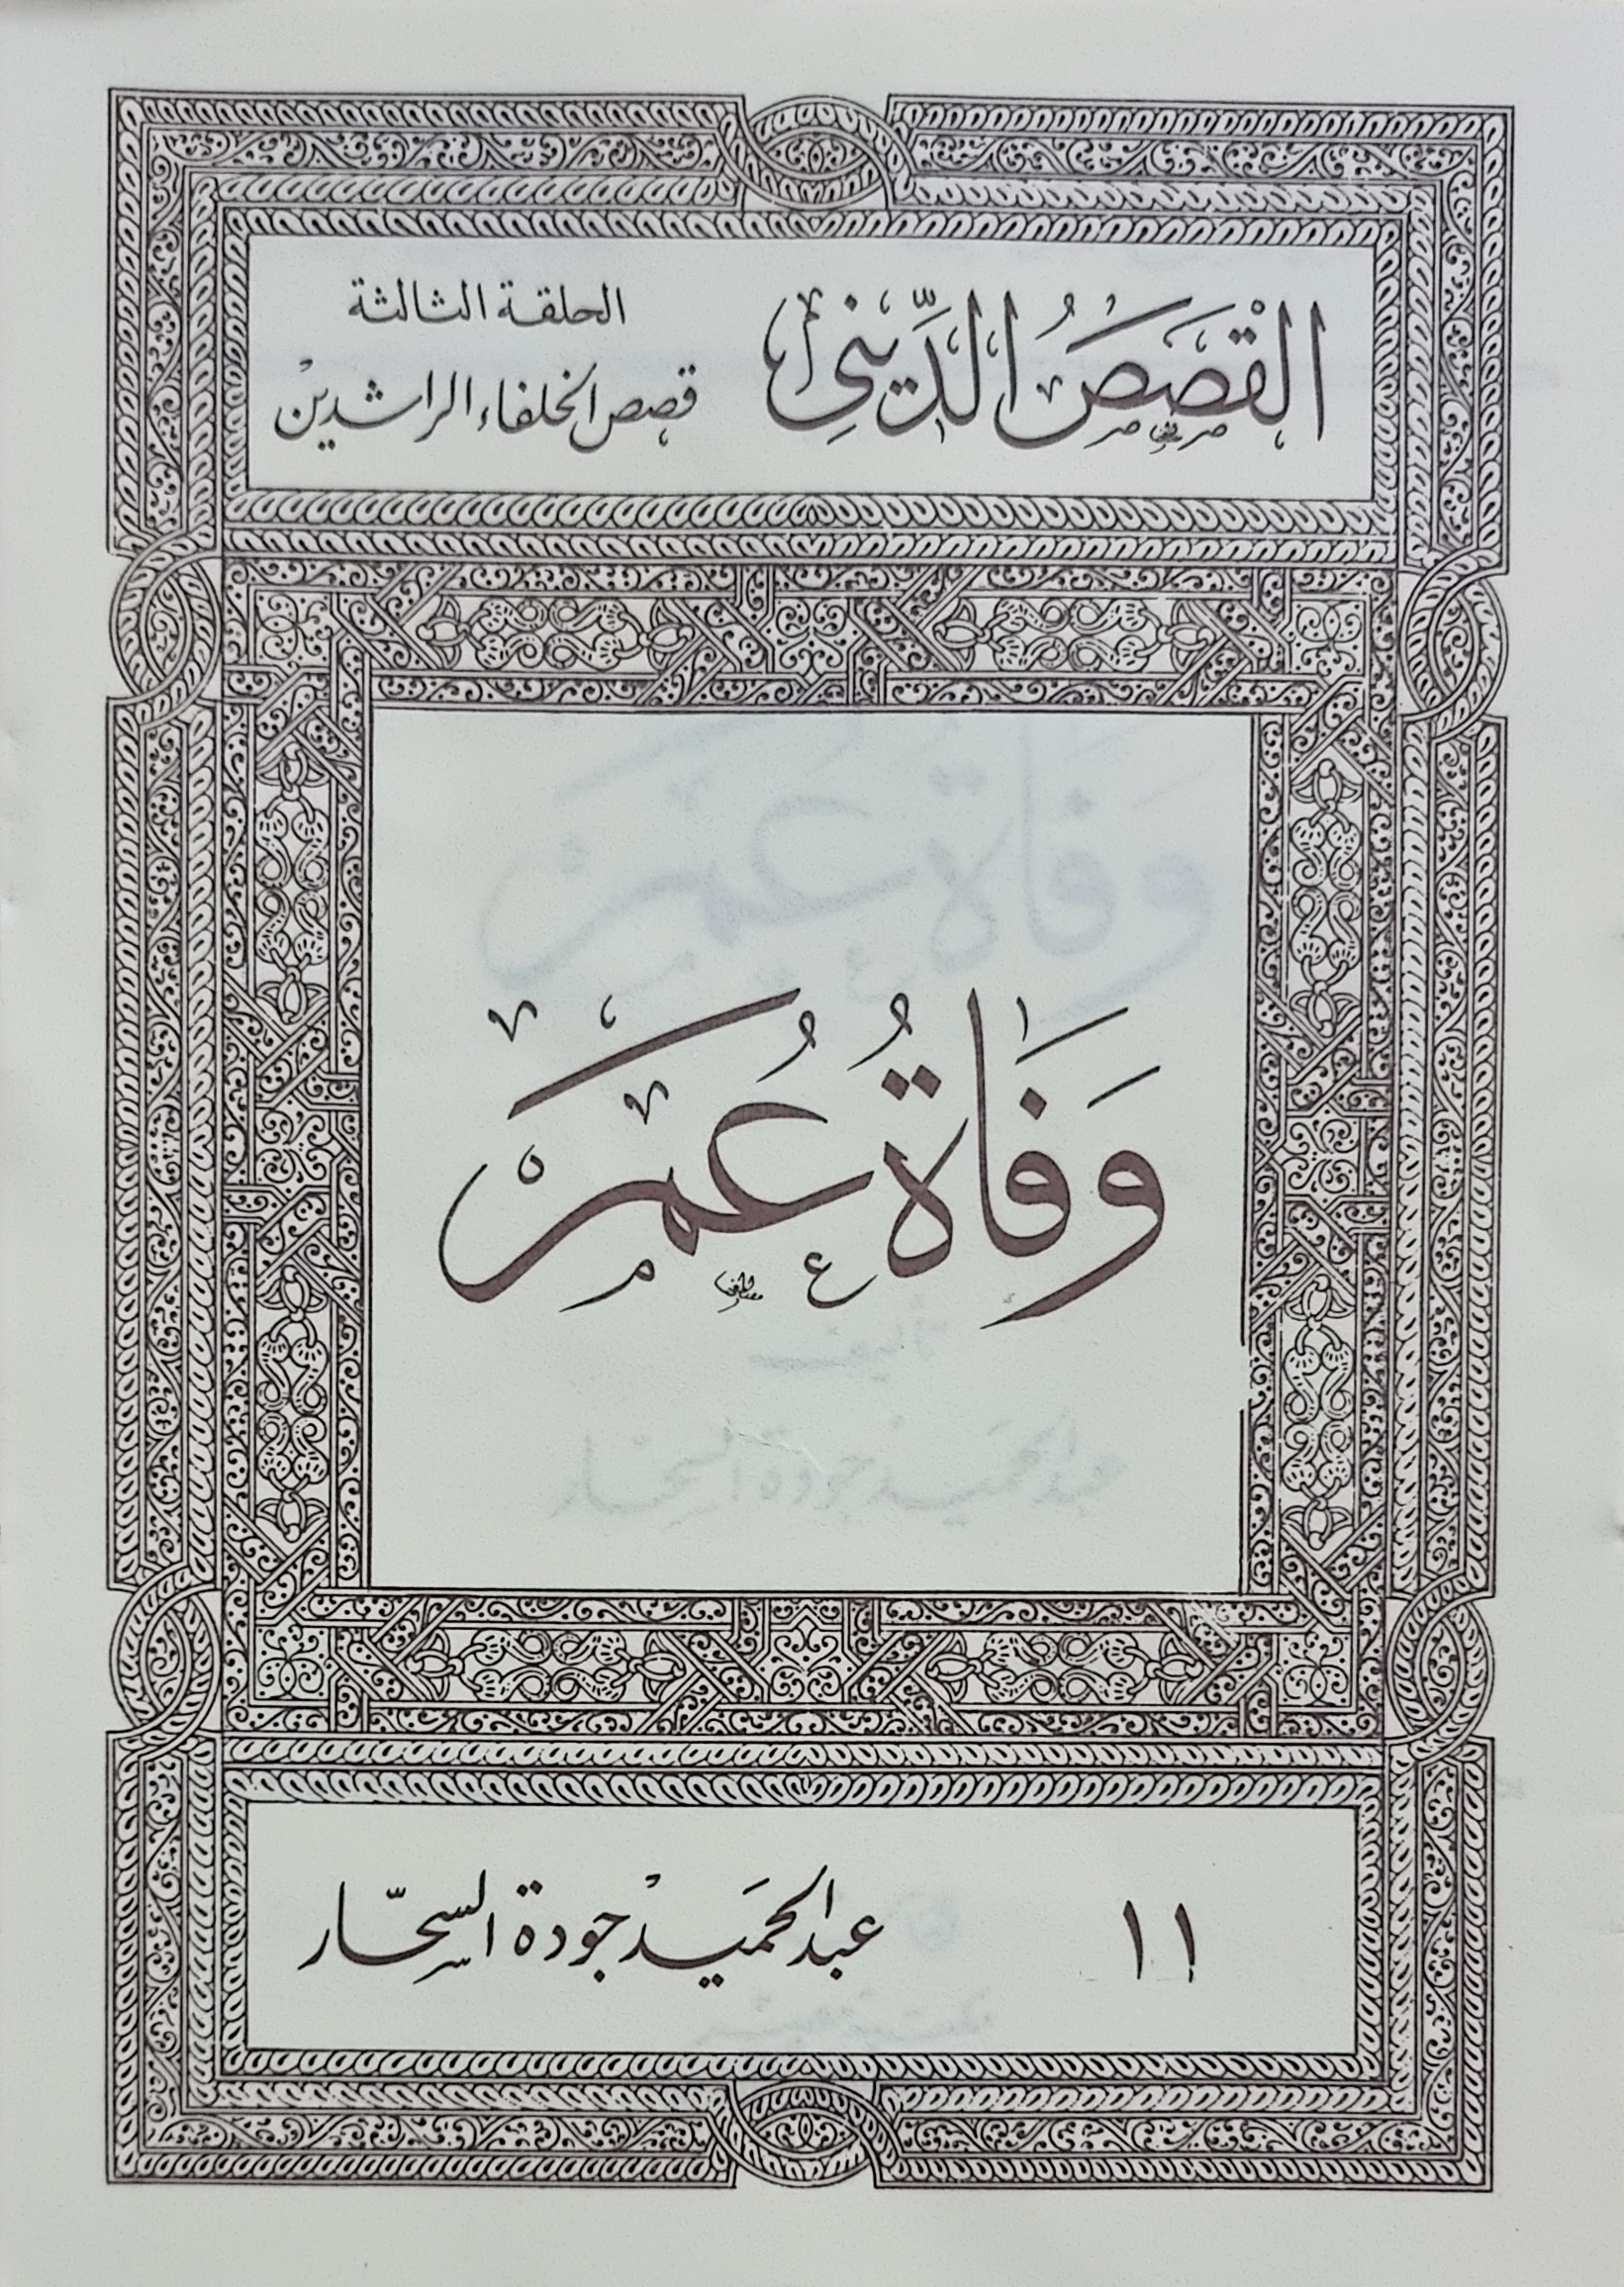 القصص الدّيني
الحلقة الثالثة
قصص الخلفاء الراشدين
وَفَاةُ عُمَرْ
١١
عبد الحميد جودة السحّار